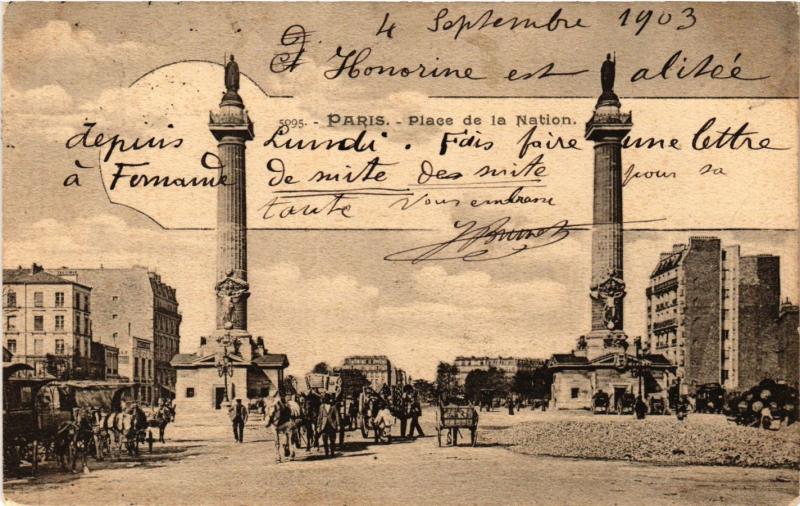 4 Septembre 1903
Honorine est alitée
5095. - PARIS. - Place de la Nation.
depuis Lundi. Fais faire une lettre
à Fernande de suite des suite pour sa
tante Vous embrasse
Brunet